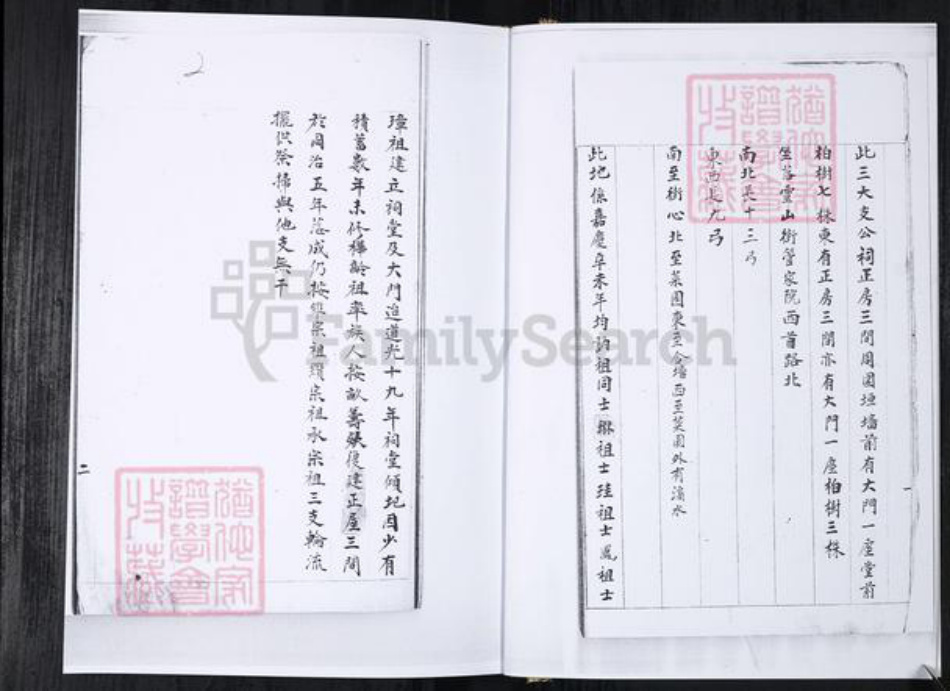 此三大支公祠正房三間周圍垣墻前有大門一座堂前
柏樹七株東有正房三間亦有大門一座柏樹三株
坐落靈山街管家院西首路北
南北長十三弓
東西長九弓
南至街心北至菜園東至仝墻西至菜園外有滴水
此地係嘉慶辛未年均訥祖同士祖士珪祖士鳳祖士
一
2
璋祖建立祠堂及大門迨道光十九年祠堂傾圯因少有
積蓄數年未修樺齡祖率族人按畝籌錢復建正屋三間
於同治五年落成仍按維宗祖顯宗祖承宗祖三支輪流
擺供祭掃與他支無干
二
猶他家
譜學會
收藏
猶他家
譜學會
收藏
FamilySearch